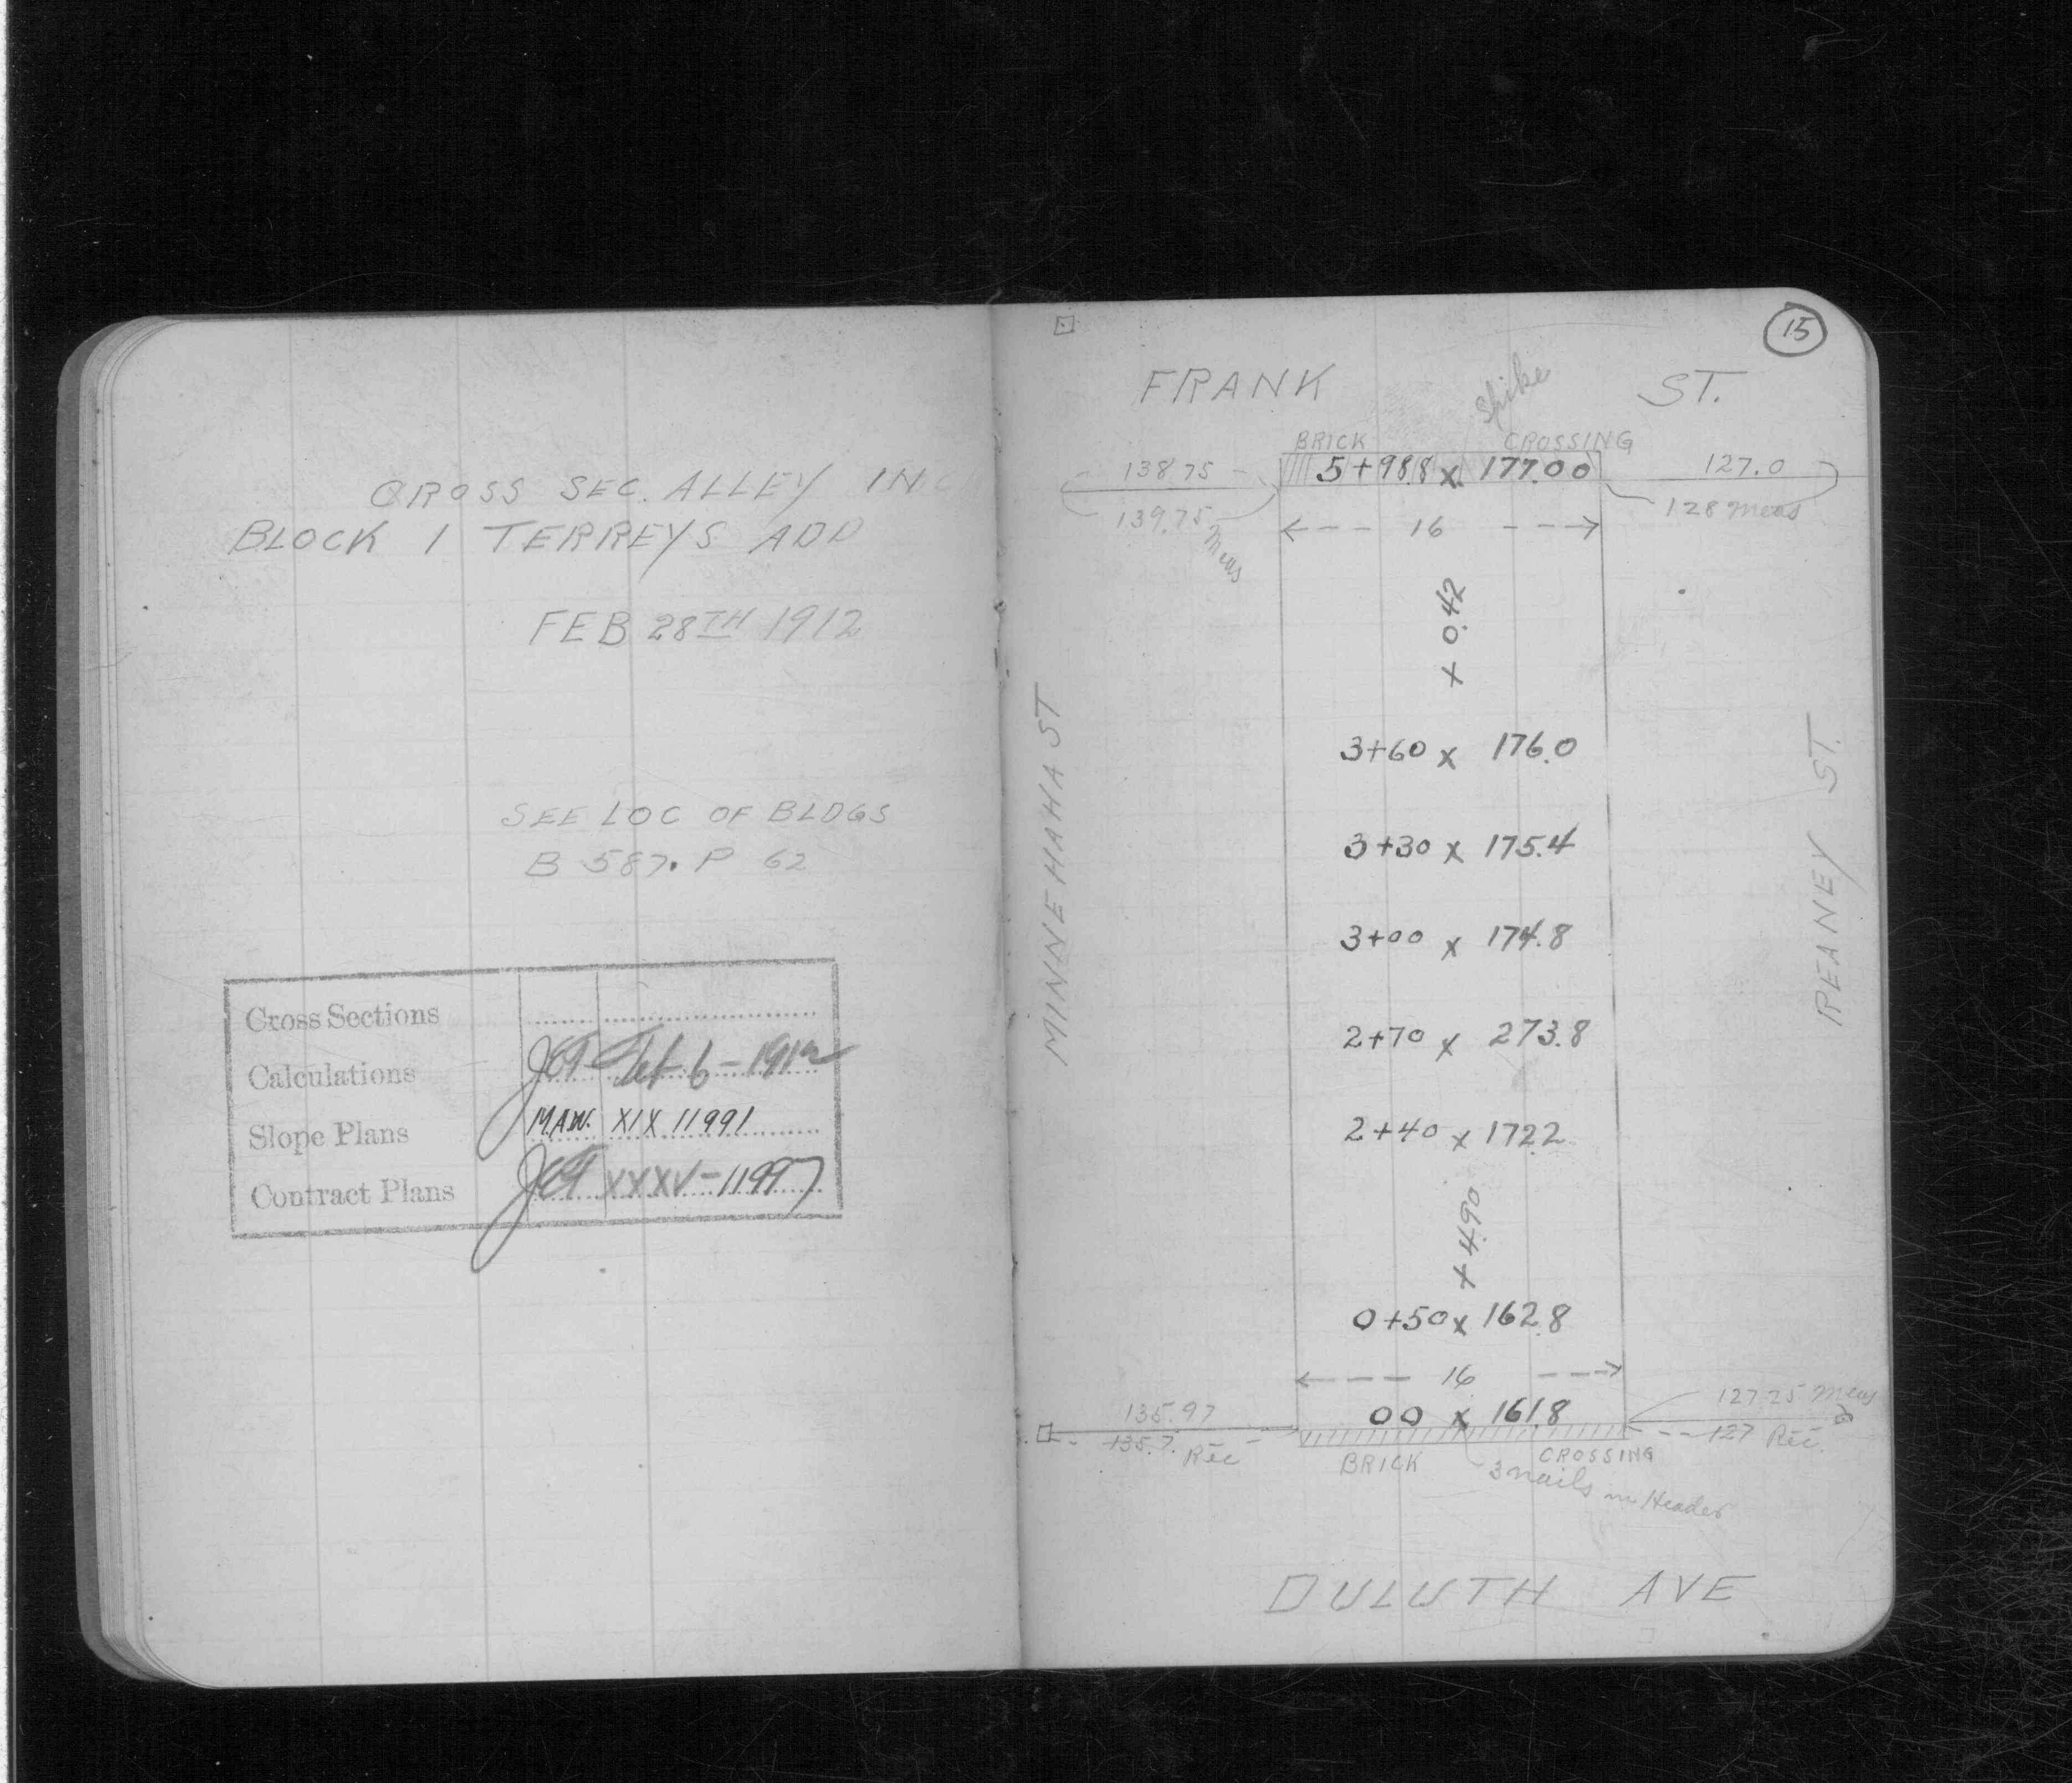 CROSS SEC. ALLEY IN
BLOCK 1 TERREYS ADD
FEB 28TH 1912
SEE LOC OF BLDGS
B 587. P 62
Cross Sections
Calculations 6-1912
Slope Plans M.A.W. XIX 11991
Contract Plans XXXV-11997
15
FRANK ST.
Spike
BRICK CROSSING
138.75 5+98.8 x 177.00 127.0
139.75 Meas 128 Meas
16
+ 0.42
3+60 x 176.0
3+30 x 175.4
3+00 x 174.8
2+70 x 273.8
2+40 x 172.2
+ 4.90
0+50 x 162.8
16
135.97 00 x 161.8 127.25 Meas
135.7 Rec 127 Rec.
BRICK CROSSING
3 nails in Header
MINNEHAHA ST
REANEY ST.
DULUTH AVE